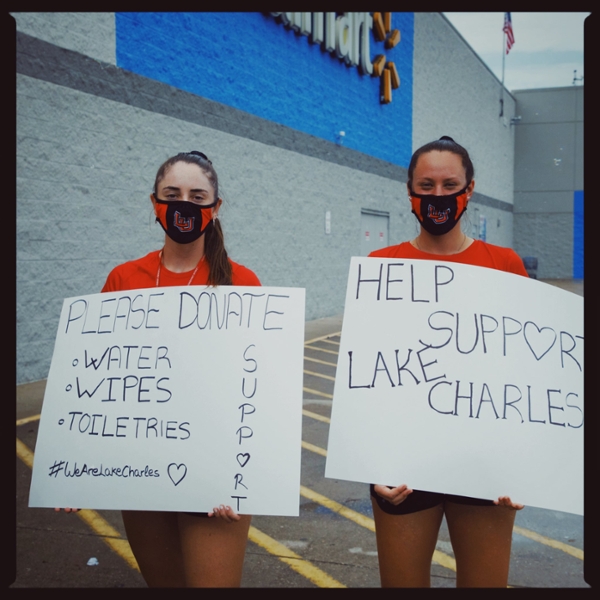 lmart
PLEASE DONATE
◦WATER
◦WIPES
◦TOILETRIES
#WeAreLakeCharles ♡
S
U
P
P
♡
R
T
HELP
SUPP♡RT
LAKE
CHARLES